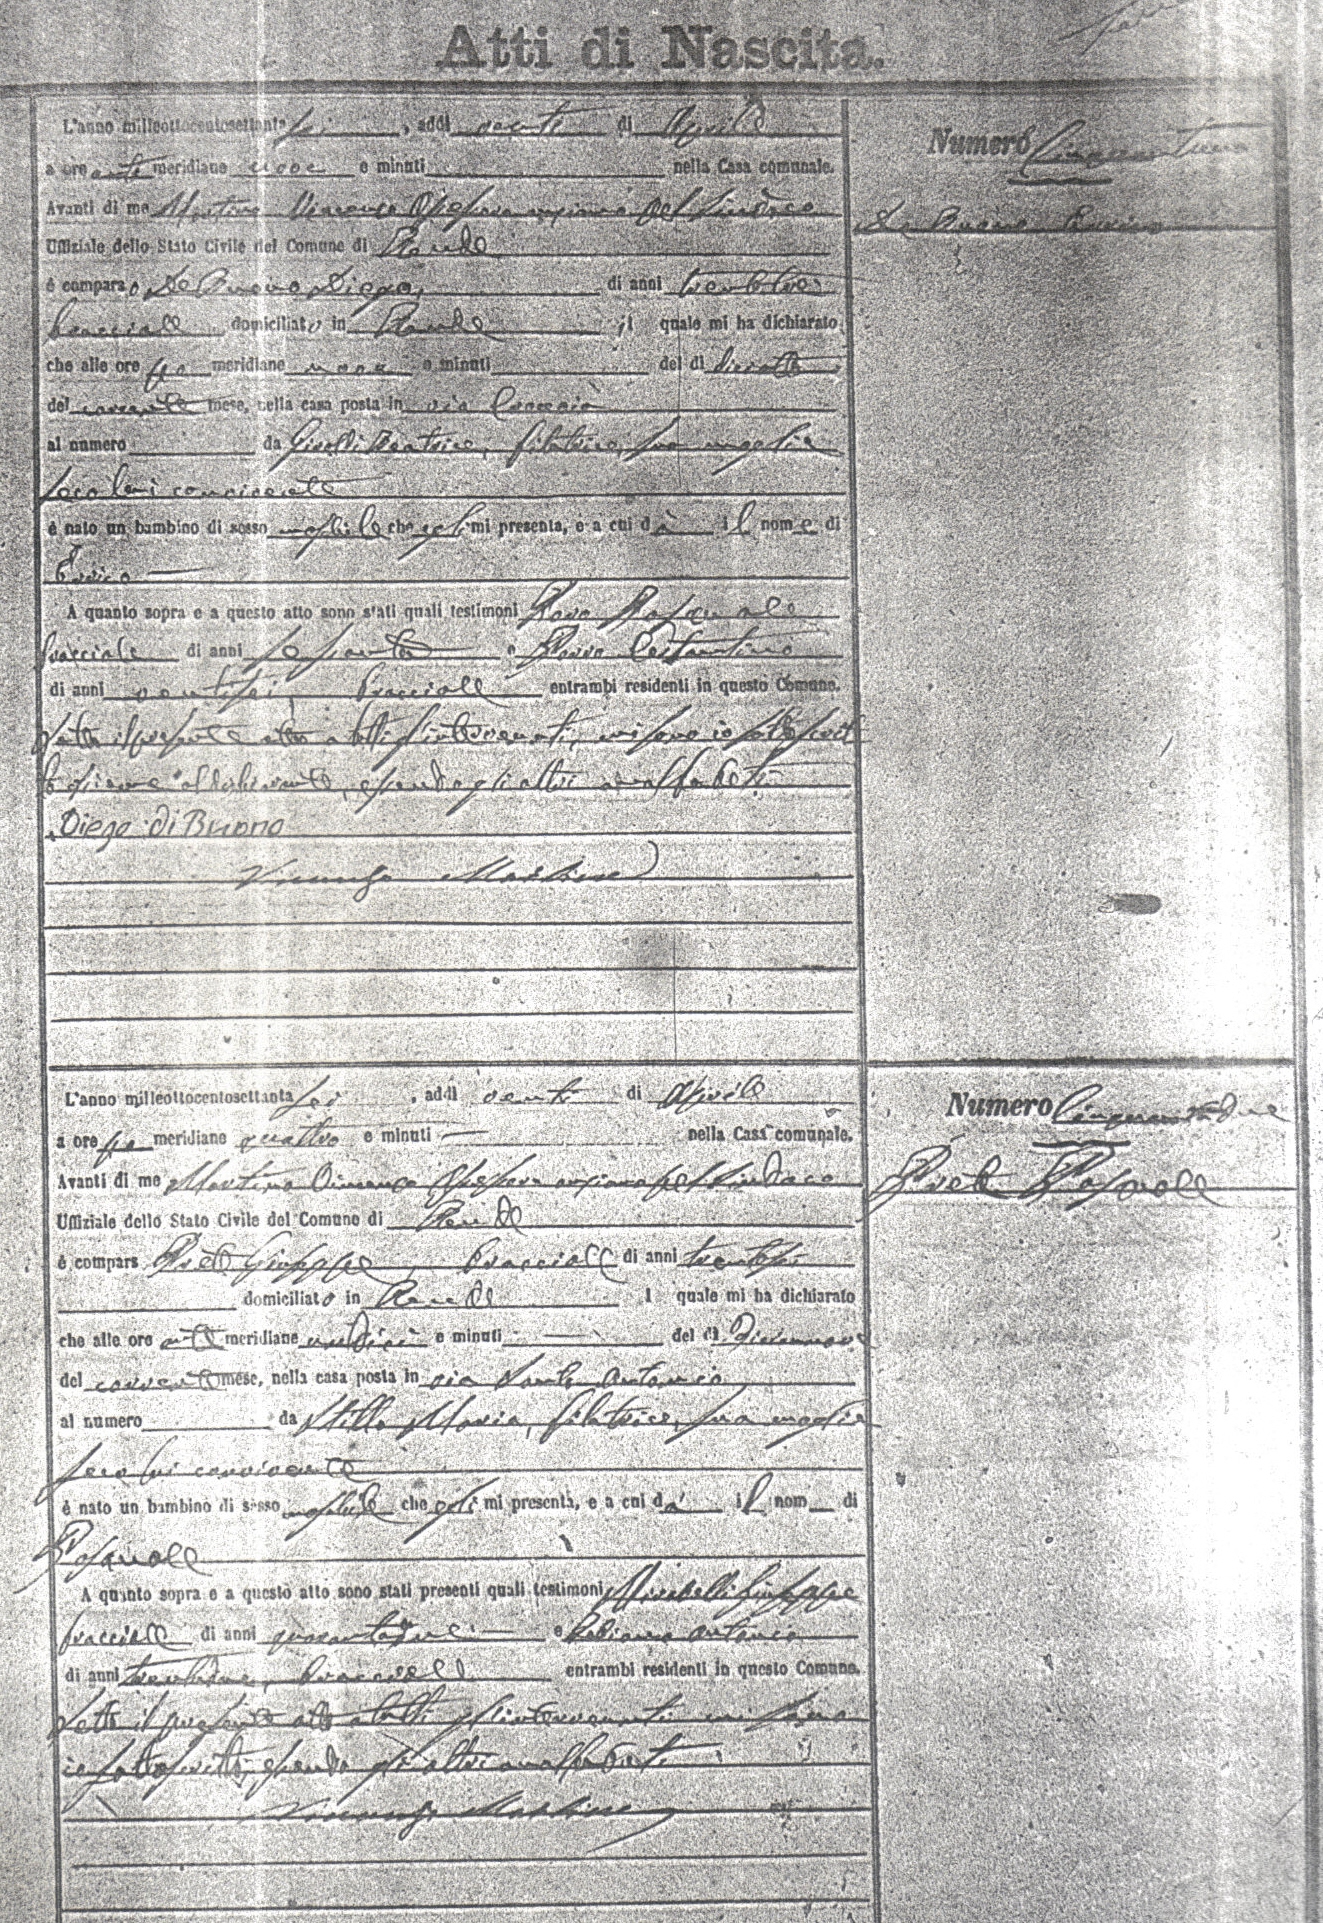 Atti di Nascita.
L'anno milleottocentosettantasei, addì venti di Aprile
a ore ante meridiane nove e minuti nella Casa comunale.
Avanti di me Martino Vincenzo Assessore anziano pel Sindaco
Uffiziale dello Stato Civile del Comune di Rende
è comparso De Buono Diego, di anni trentatre
bracciale domiciliato in Rende, il quale mi ha dichiarato
che alle ore po meridiane nove e minuti del dì dieciotto
del corrente mese, nella casa posta in via
al numero da Beatrice, filatrice, sua moglie
seco lui convivente
è nato un bambino di sesso maschile che egli mi presenta, e a cui dà il nome di
Enrico
A quanto sopra e a questo atto sono stati quali testimoni Pasquale
bracciale di anni sessanta e Costantino
di anni ventisei bracciale entrambi residenti in questo Comune.
Letto il presente atto a tutti gl'intervenuti, mi sono io sottoscrit
to insieme al dichiarante, essendo gli altri analfabeti
Diego di Buono
Vincenzo Martino
Numero Cinquantuno
De Buono Enrico
L'anno milleottocentosettantasei, addì venti di Aprile
a ore po meridiane quattro e minuti nella Casa comunale.
Avanti di me Martino Vincenzo Assessore anziano pel Sindaco
Uffiziale dello Stato Civile del Comune di Rende
è compars Prete Giuseppe, bracciale di anni trentasei
domiciliato in Rende l quale mi ha dichiarato
che alle ore ante meridiane undici e minuti del dì Diciannove
del corrente mese, nella casa posta in via Santo Antonio
al numero da Stillo Maria, filatrice, sua moglie
seco lui convivente
è nato un bambino di sesso maschile che egli mi presenta, e a cui dà il nom di
Pasquale
A quanto sopra e a questo atto sono stati presenti quali testimoni Mirabelli Giuseppe
bracciale di anni quarantadue e Antonio
di anni bracciale entrambi residenti in questo Comune.
Letto il presente atto a tutti gl'intervenuti mi sono
io sottoscritto, essendo gli altri analfabeti
Vincenzo Martino
Numero Cinquantadue
Prete Pasquale